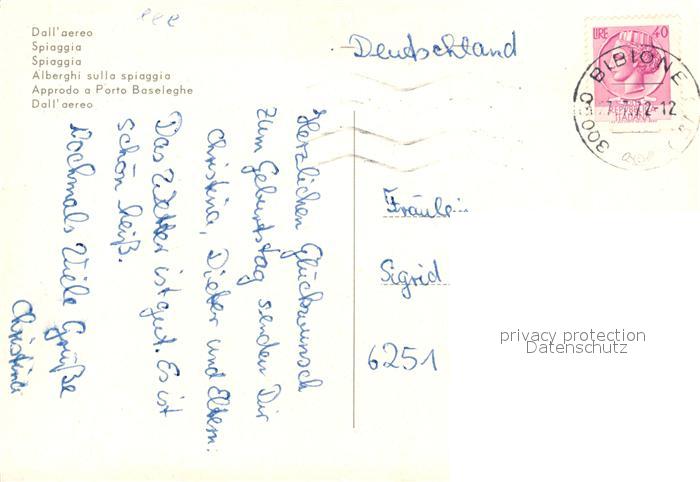 Dall'aereo
Spiaggia
Spiaggia
Alberghi sulla spiaggia
Approdo a Porto Baseleghe
Dall'aereo
Deutschland
LIRE 40
30020 BIBIONE
7.7.72-12
Herzlichen Glückwunsch
zum Geburtstag senden Dir
Christina, Dieter und Eltern.
Das Wetter ist gut. Es ist
schön heiß.
Nochmals Viele Grüße
Christina
Fräulein
Sigrid
6251
privacy protection
Datenschutz